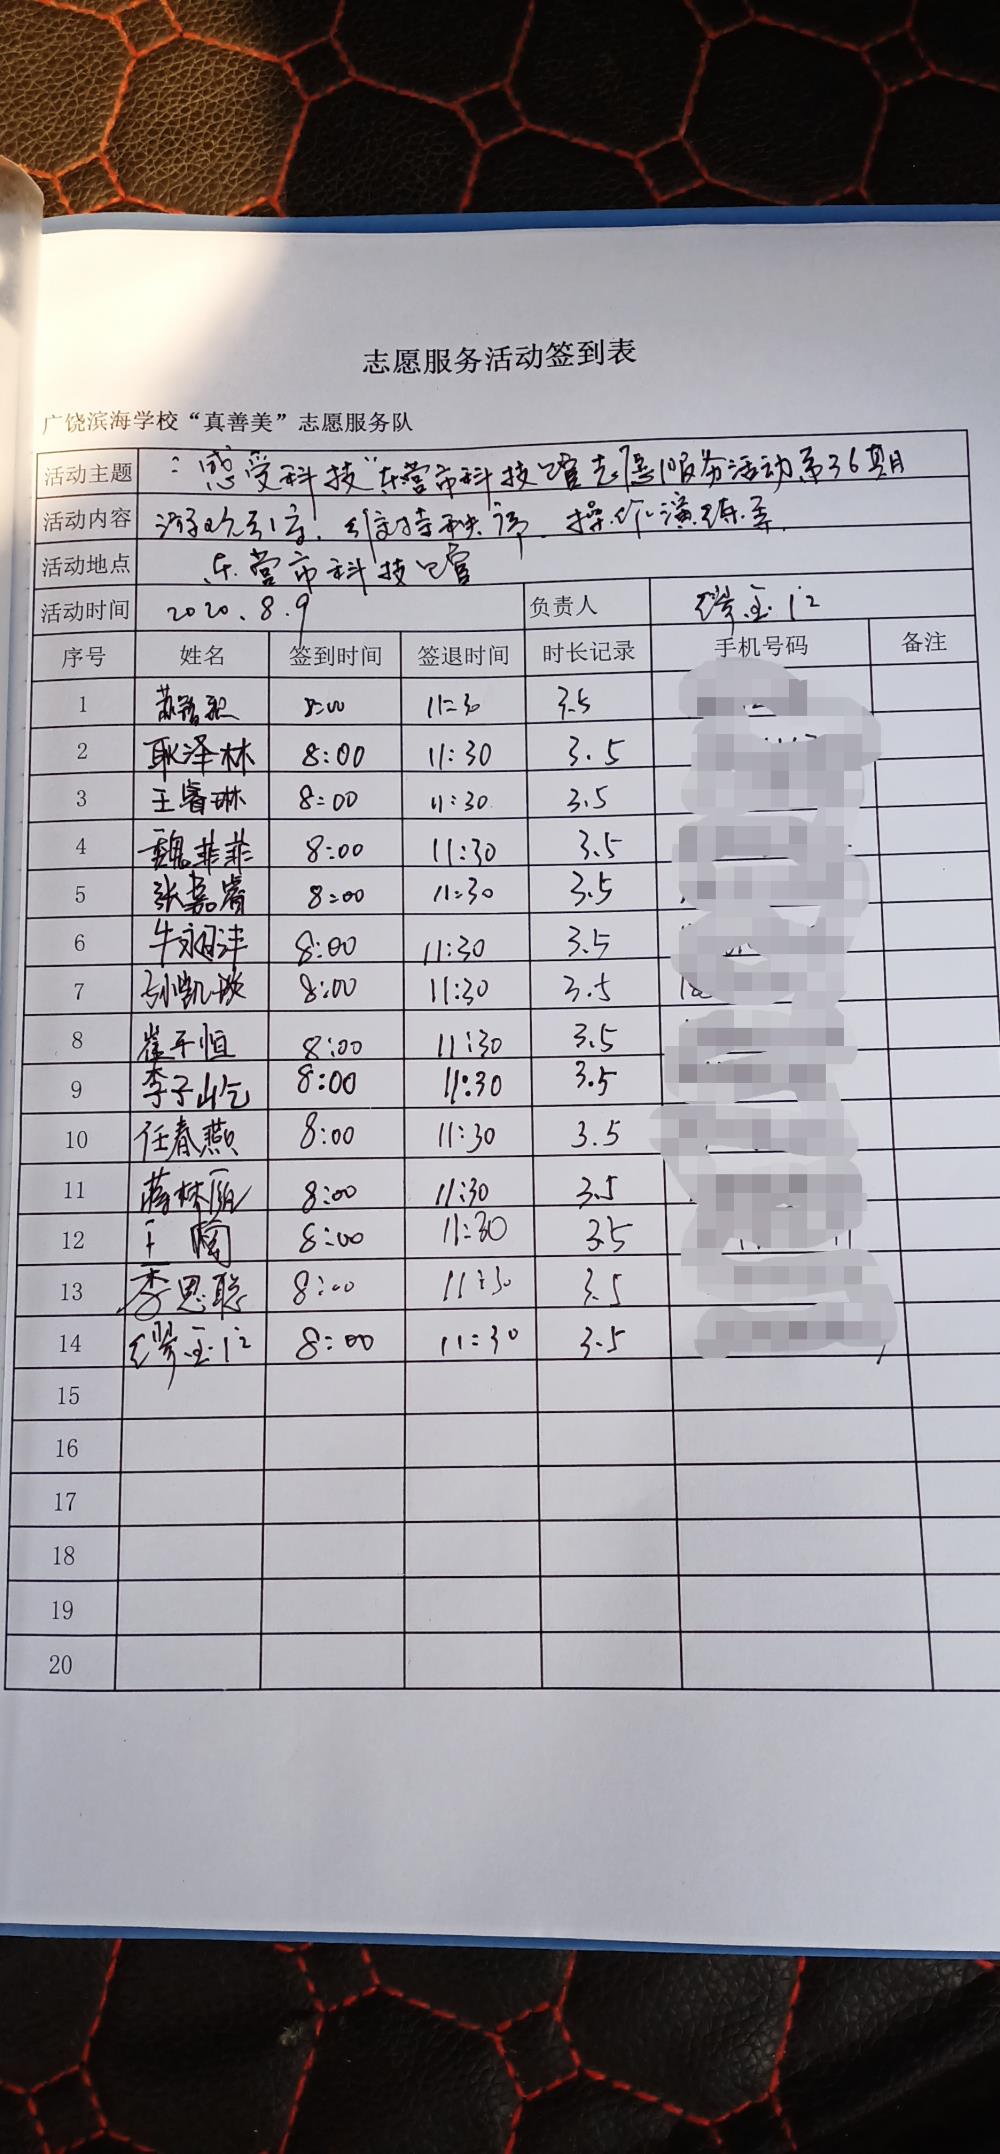 志愿服务活动签到表
广饶滨海学校“真善美”志愿服务队
活动主题 “感受科技”东营市科技馆志愿服务活动第36期
活动内容 游玩引导、维持秩序、操作演练等
活动地点 东营市科技馆
活动时间 2020.8.9 负责人
序号 姓名 签到时间 签退时间 时长记录 手机号码 备注
1 8:00 11:30 3.5
2 耿泽林 8:00 11:30 3.5
3 王睿琳 8:00 11:30 3.5
4 魏菲菲 8:00 11:30 3.5
5 张嘉睿 8:00 11:30 3.5
6 牛 8:00 11:30 3.5
7 8:00 11:30 3.5
8 崔子恒 8:00 11:30 3.5
9 李子屹 8:00 11:30 3.5
10 任春燕 8:00 11:30 3.5
11 蒋林 8:00 11:30 3.5
12 王陶 8:00 11:30 3.5
13 李思聪 8:00 11:30 3.5
14 8:00 11:30 3.5
15
16
17
18
19
20